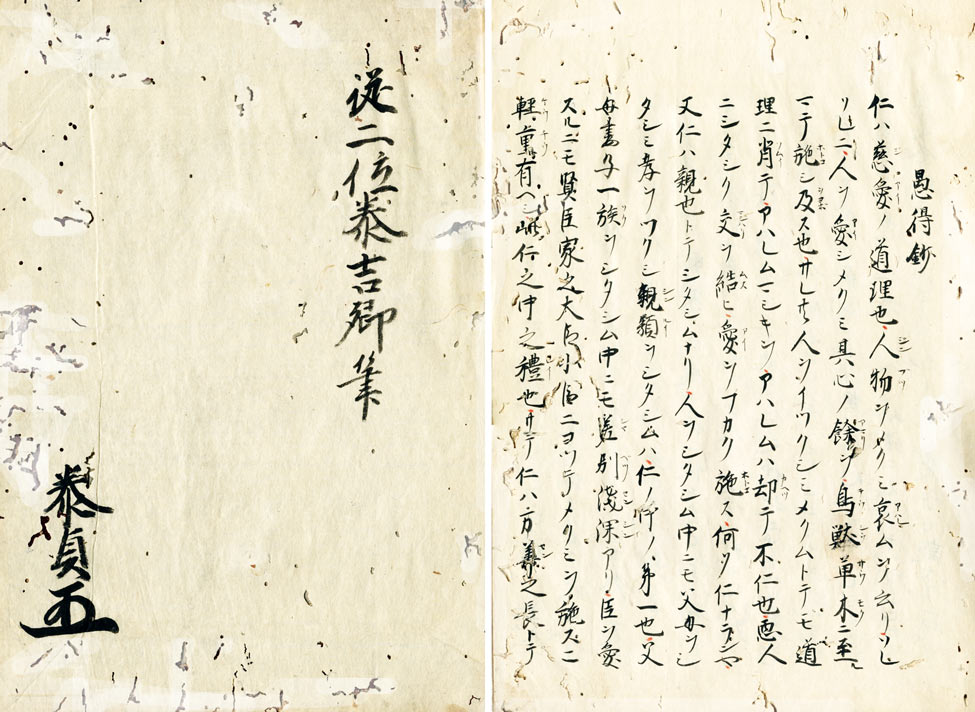 愚得鈔
仁ハ慈愛ノ道理也人物ヲメクミ哀ムヲ云リソレ
リレニ人ヲ愛シメクミ其心ノ餘ヲ鳥獣草木ニ至
マテ施シ及ス也サレ共人ヲイツクシミメクムトテモ道
理ニ背テアハレムマシキヲアハレムハ却テ不仁也悪人
ニシタシク交ヲ結ヒ愛ヲフカク施ス何ソ仁ナランヤ
又仁ハ親也トテシタシムナリ人ヲシタシム中ニモ父母ヲシ
タシミ孝ヲツクシ親類ヲシタシムハ仁ノ行ノ第一也父
母妻子一族ヲシタシム中ニモ差別浅深アリ臣ヲ愛
スルニモ賢臣家之大臣小臣ニヨツテメクミヲ施スニ
軽重有ヘシ此仁之中之禮也サテ仁ハ万善之長トテ
従二位泰吉卿筆
泰貞